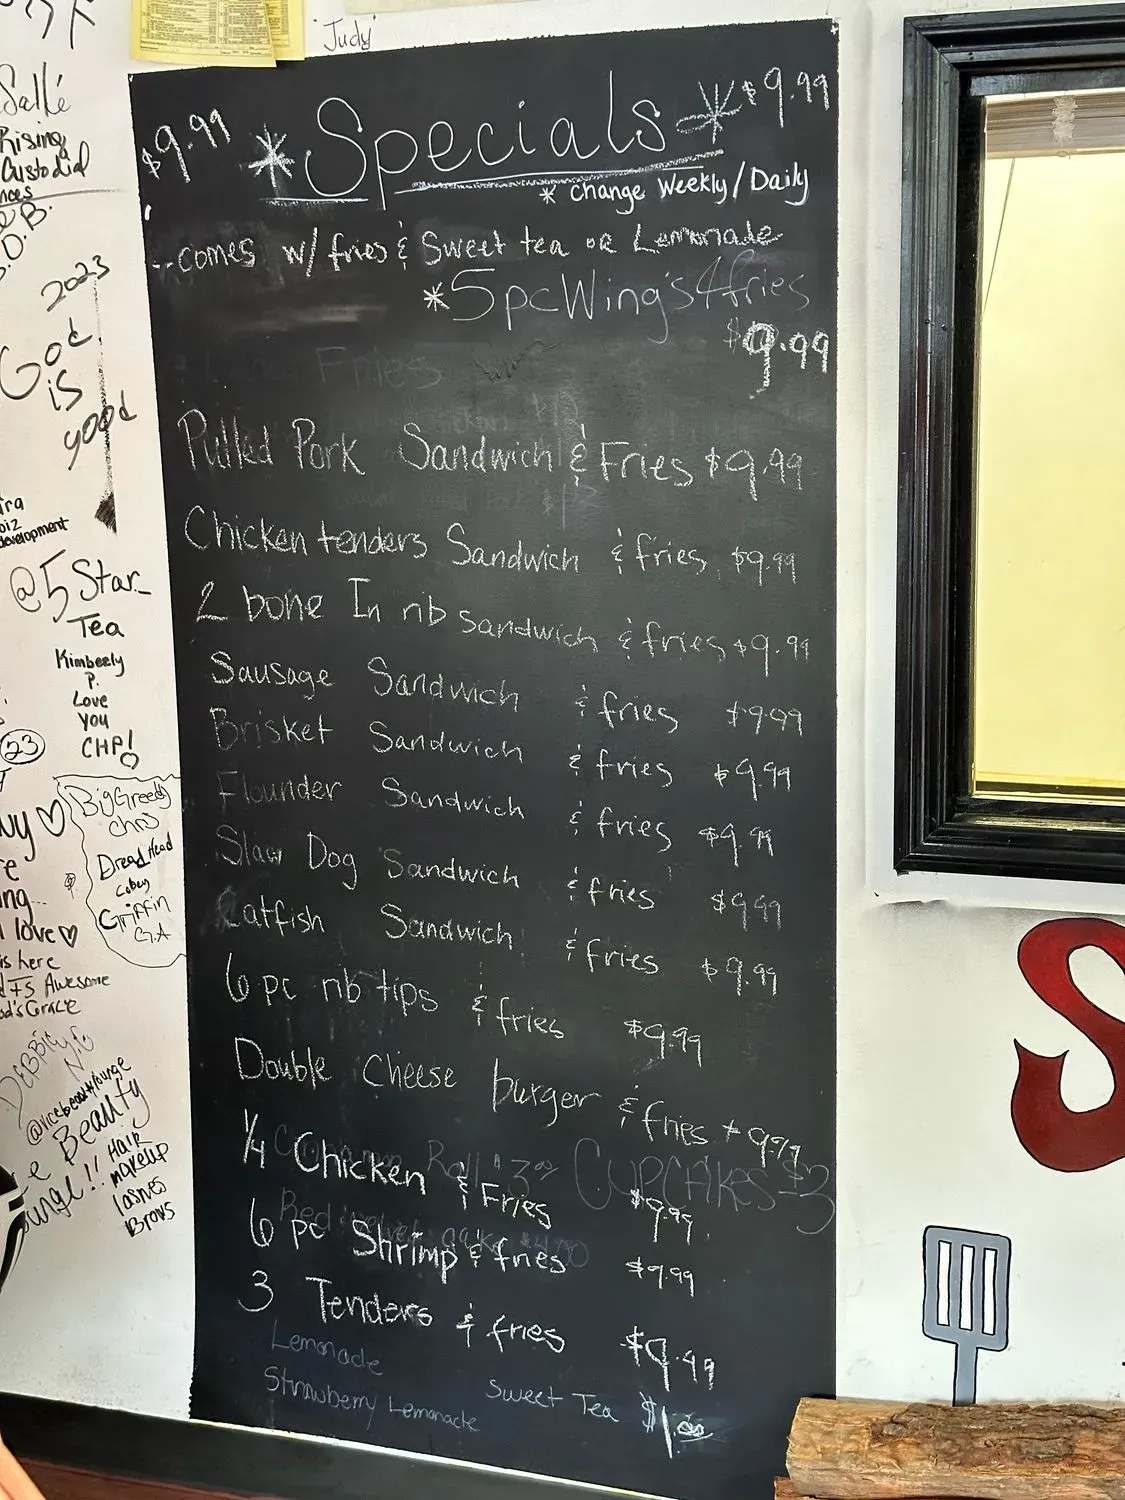 Judy
$9.99 *Specials* $9.99
* change Weekly/Daily
--comes w/ fries & Sweet tea or Lemonade
*5pcWing's & fries
$9.99
Fries
Pulled Pork Sandwich & Fries $9.99
Chicken tenders Sandwich & fries $9.99
2 bone In rib sandwich & fries $9.99
Sausage Sandwich & fries $9.99
Brisket Sandwich & fries $9.99
Flounder Sandwich & fries $9.99
Slaw Dog Sandwich & fries $9.99
Catfish Sandwich & fries $9.99
6 pc rib tips & fries $9.99
Double Cheese burger & fries $9.99
1/4 Chicken & Fries $9.99
Roll $3.00 CUPCAKES $3
6 pc Shrimp & fries $9.99
Red velvet
3 Tenders & fries $9.99
Lemonade
Strawberry Lemonade
Sweet Tea $1.00
Sallé
Rising
Custodial
D.B.
2023
God
is
good
development
@5 Star_
Tea
Kimbeely
P.
Love
you
CHP!
23
Big Greedy
Chris
Dread Head
Griffin
GA
love
is here
IS Awesome
God's Grace
Beauty
HAIR
makeup
lashes
Brows